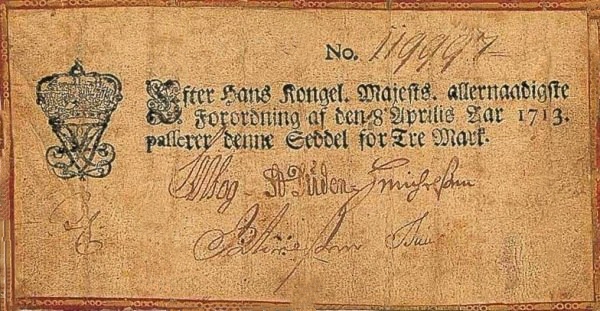 No. 119997
Efter Hans Kongel. Majests. allernaadigste
Forordning af den 8 Aprilis Aar 1713.
passerer denne Seddel for Tre Mark.